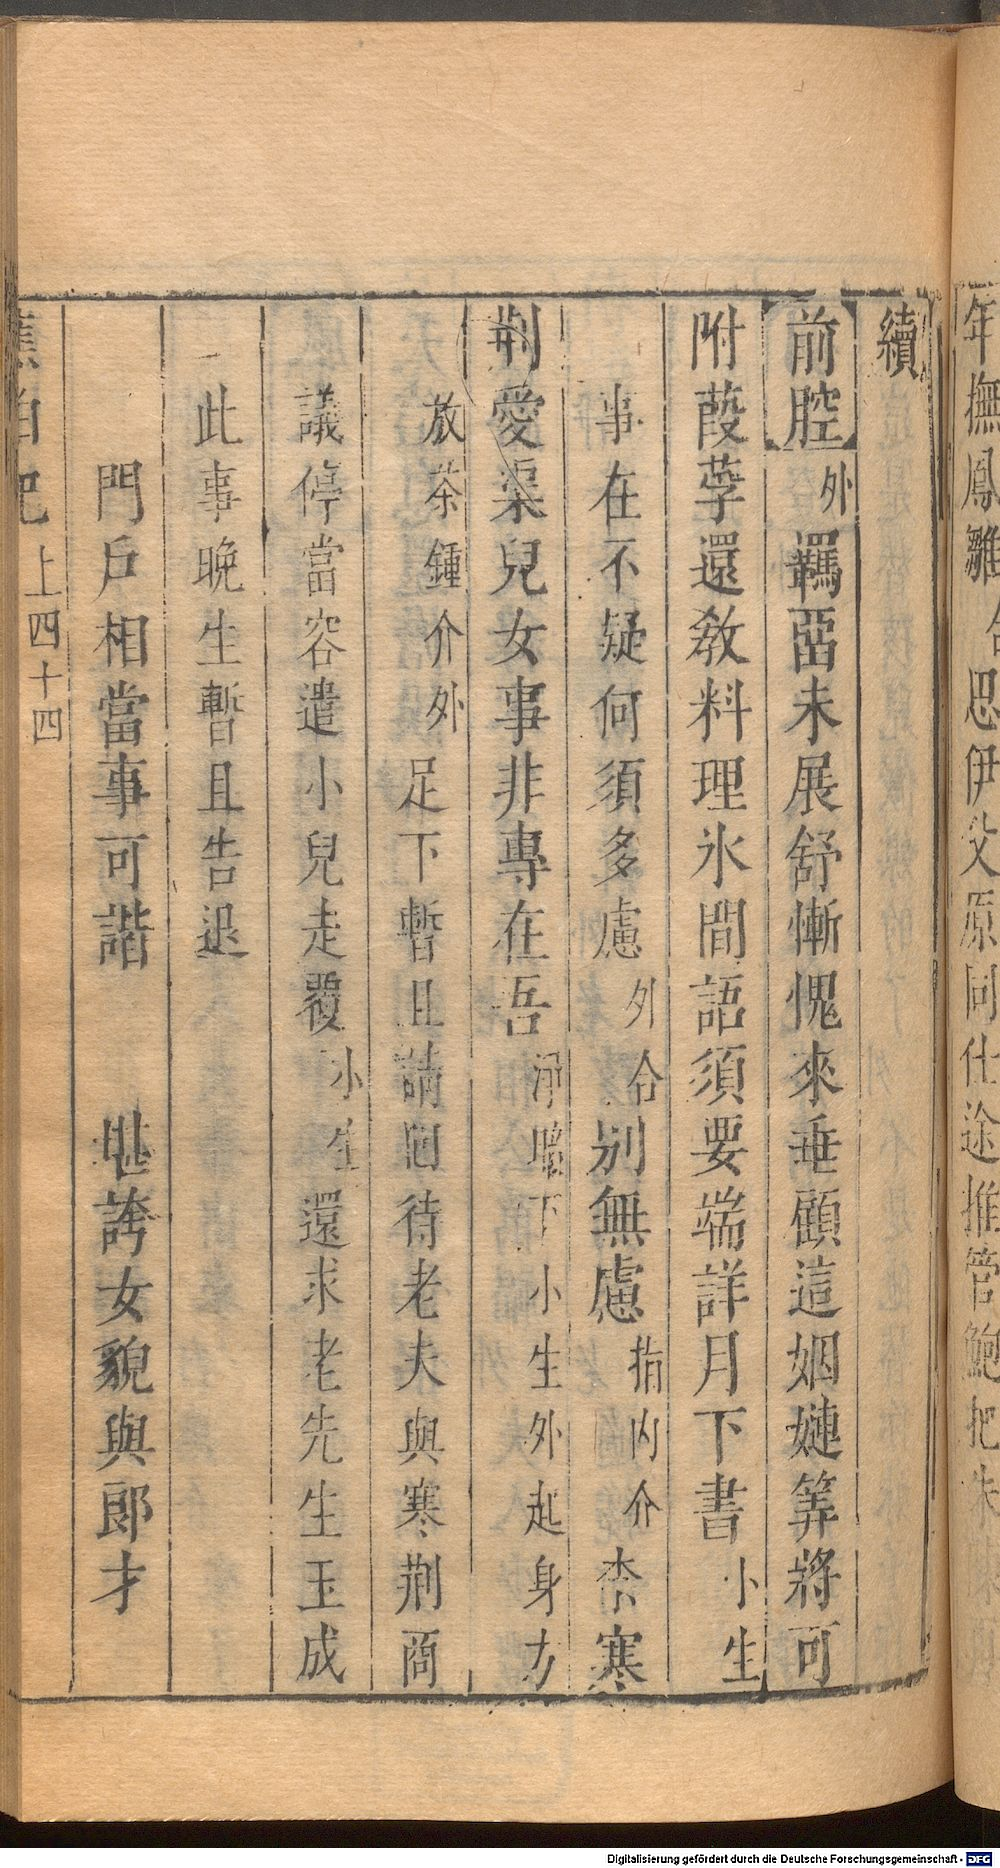 年撫鳳雛
思伊父原同仕途推管鮑把
續
前腔外羈𦊰未展舒慚愧來垂顧這姻㜕筭將可
附葭莩還敎料理氷間語須要端詳月下書小生
事在不疑何須多慮外合別無慮指内介柰寒
荆愛渠兒女事非專在吾淨嚷下小生外起身方
放茶鍾介外足下暫且請囘待老夫與寒荆商
議停當容遣小兒走覆小生還求老先生玉成
此事晚生暫且告退
門戶相當事可諧 堪誇女貌與郎才
蕉帕記上四十四
Digitalisierung gefördert durch die Deutsche Forschungsgemeinschaft - DFG